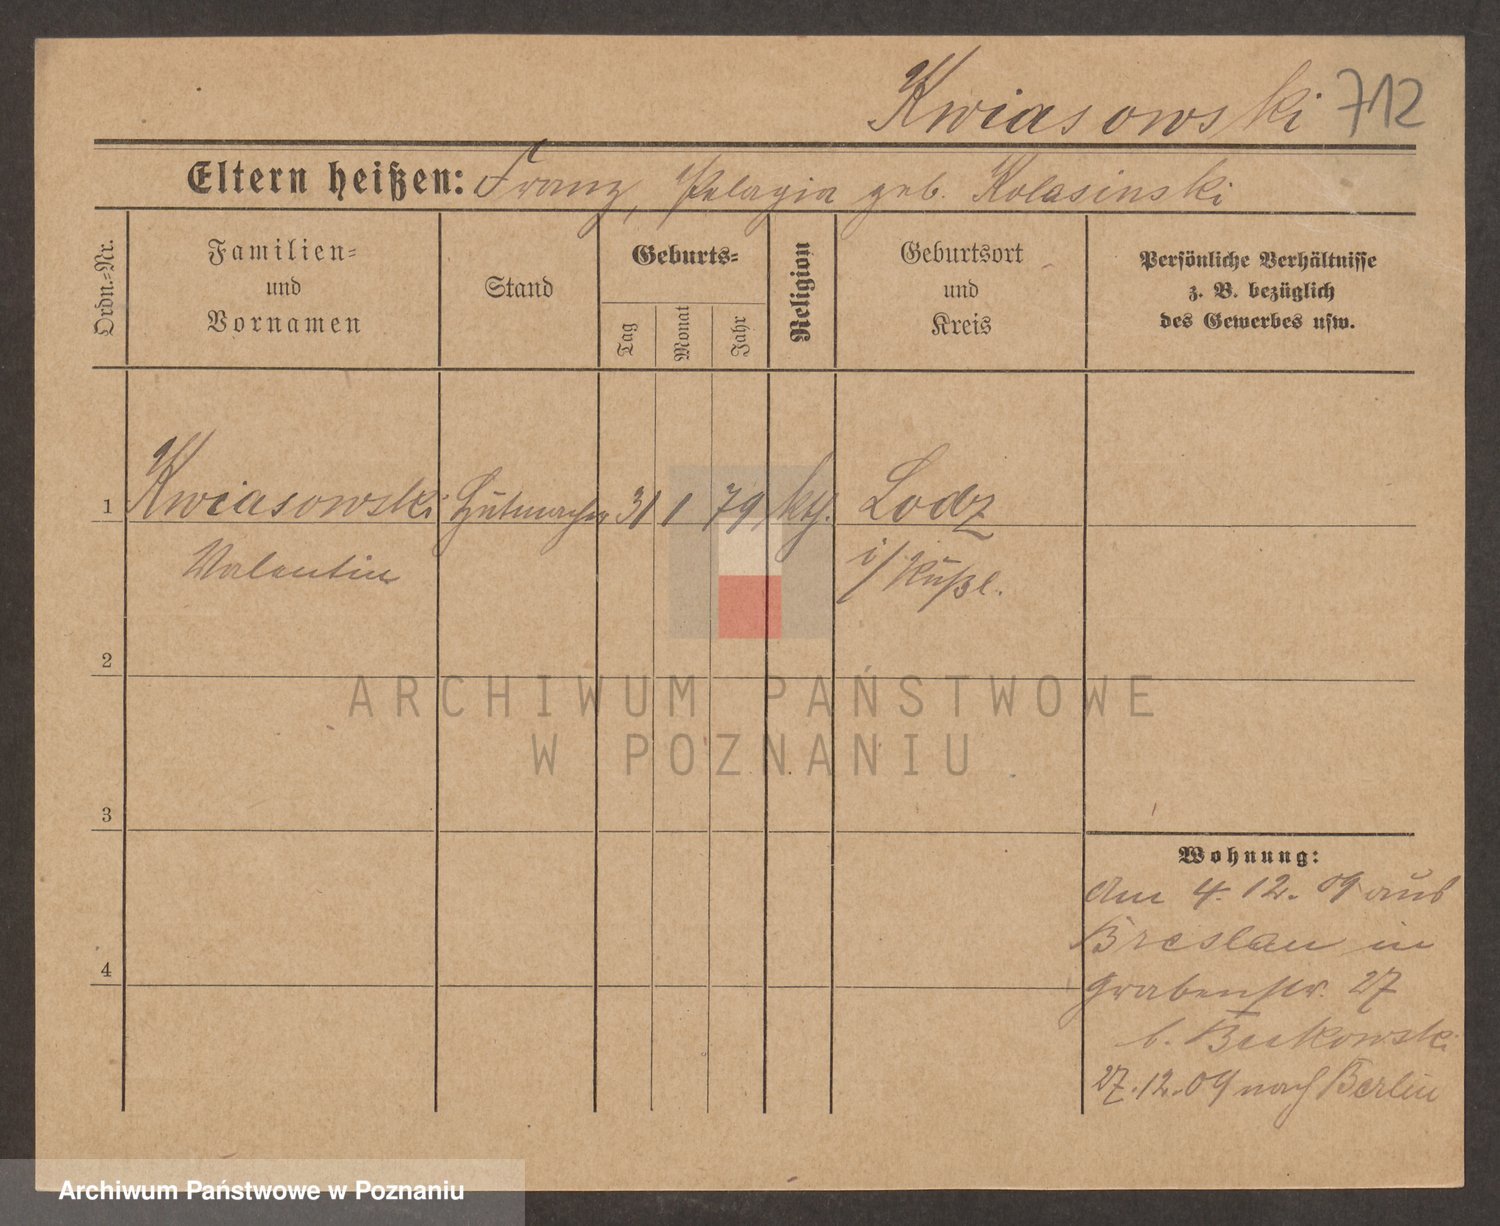 Kwiasowski 712
Eltern heißen: Franz, Pelagia geb. Kolasinski
Ordn.=Nr.
Familien=
und
Vornamen
Stand
Geburts=
Tag
Monat
Jahr
Religion
Geburtsort
und
Kreis
Persönliche Verhältnisse
z. B. bezüglich
des Gewerbes usw.
1 Kwiasowski Hutmacher 31 1 79 kth. Lodz
Valentin i/Rußl.
2
ARCHIWUM PAŃSTWOWE
W POZNANIU
3
Wohnung:
Am 4.12.09 aus
Breslau in
4
Grabenstr. 27
b. Bukowski
27.12.09 nach Berlin
Archiwum Państwowe w Poznaniu